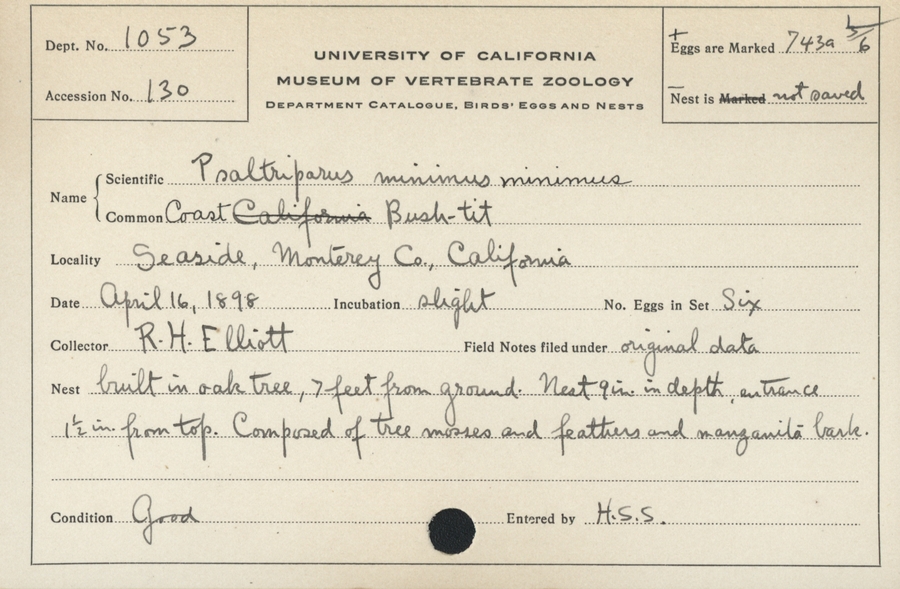 Dept. No. 1053
Accession No. 130
UNIVERSITY OF CALIFORNIA
MUSEUM OF VERTEBRATE ZOOLOGY
DEPARTMENT CATALOGUE, BIRDS' EGGS AND NESTS
+ Eggs are Marked 743a 5/6
– Nest is Marked not saved
Name { Scientific Psaltriparus minimus minimus
Common Coast California Bush-tit
Locality Seaside, Monterey Co., California
Date April 16, 1898 Incubation slight No. Eggs in Set Six
Collector R. H. Elliott Field Notes filed under original data
Nest built in oak tree, 7 feet from ground. Nest 9 in. in depth, entrance
1½ in. from top. Composed of tree mosses and feathers and manzanita bark.
Condition Good Entered by H.S.S.